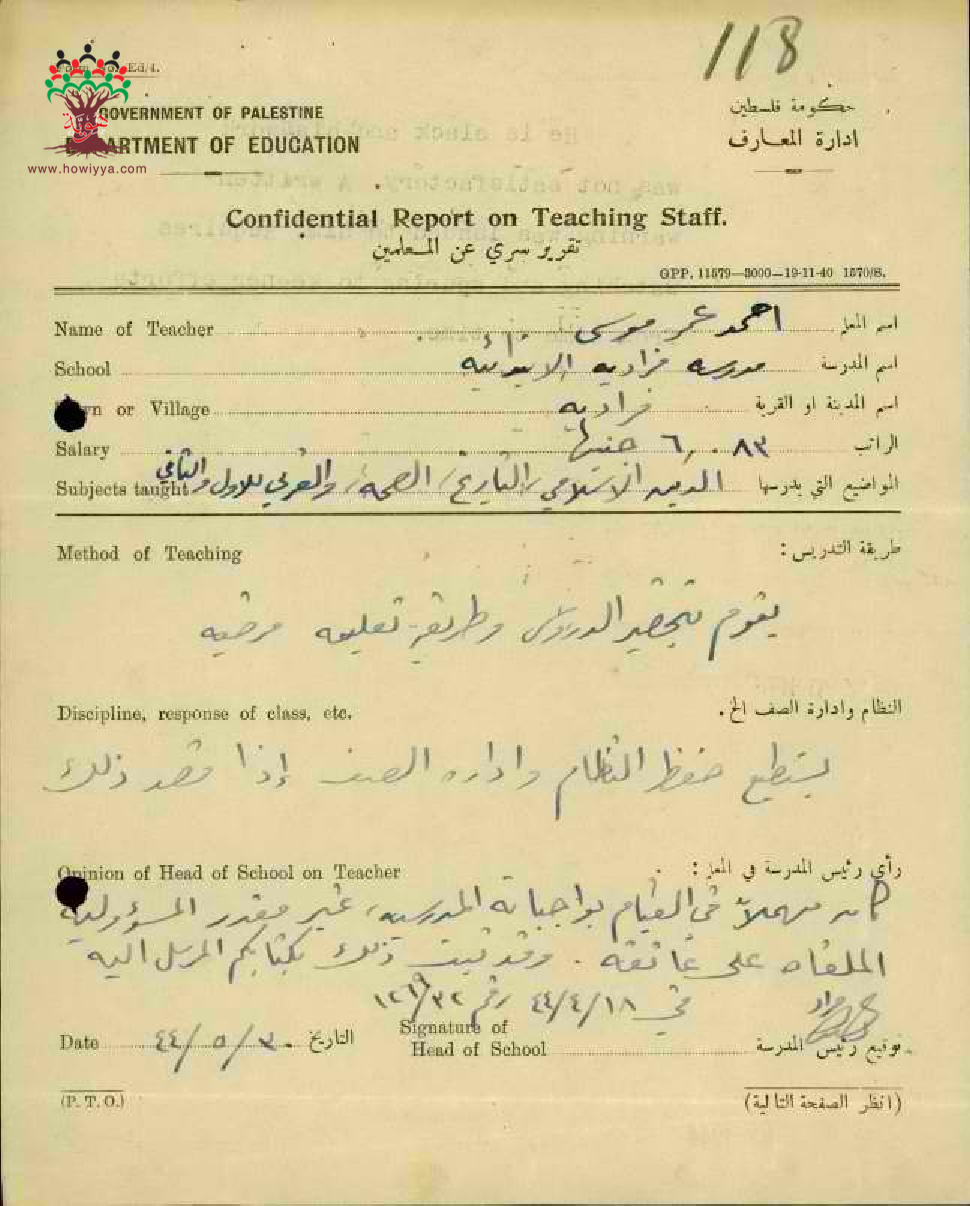 118
Ed/4.
www.howiyya.com
GOVERNMENT OF PALESTINE
DEPARTMENT OF EDUCATION
حكومة فلسطين
ادارة المعارف
Confidential Report on Teaching Staff.
تقرير سري عن المعلمين
GPP. 11579—3000—19-11-40 1570/S.
Name of Teacher احمد عمر موسى اسم المعلم
School مدرسة فراديه الابتدائيه اسم المدرسة
Town or Village فراديه اسم المدينة او القرية
Salary ٨٣ ٦ جنيها الراتب
Subjects taught الدين الاسلامي، التاريخ، الصحة، والعربي للاول والثاني المواضيع التي يدرسها
Method of Teaching طريقة التدريس :
يقوم بتحضير الدروس وطريقة تعليمه مرضيه
Discipline, response of class, etc. النظام وادارة الصف الخ.
يستطيع حفظ النظام واداره الصف إذا قصد ذلك
Opinion of Head of School on Teacher رأي رئيس المدرسة في المعلم :
كان مهملاً في القيام بواجباته المدرسيه، غير مقدر المسؤولية
الملقاه على عاتقه . وقد ثبت ذلك بكتابكم المرسل اليه
في ٤٤/٤/١٨ رقم
Date ٤٤/٥/٣٠ التاريخ Signature of Head of School توقيع رئيس المدرسة
(P. T. O.) (انظر الصفحة التالية)